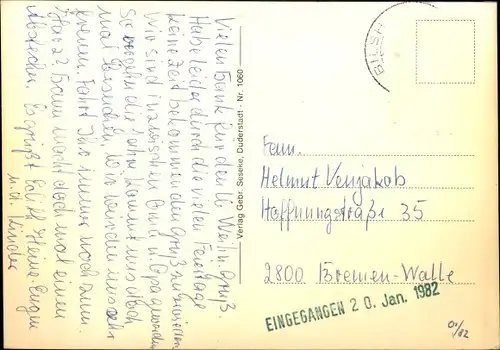 Vielen Dank für den lb. Weihn. Gruß.
Habe leider durch die vielen Feiertage
keine Zeit bekommen den Gruß zu erwidern
Wir sind inzwischen Oma u. Opa geworden
So vergehen die Jahre kommt uns doch
mal besuchen, wir würden uns sehr
freuen. Fahrt Ihr immer noch zum
Harz? Dann macht doch mal einen
Abstecher. Es grüßt Edith, Heinz, Eugen
u. d. Kinder
Verlag Gebr. Seseke, Duderstadt - Nr. 1060
Fam.
Helmut Venjakob
Hoffnungstraße 35
2800 Bremen-Walle
EINGEGANGEN 20. Jan. 1982
01/82